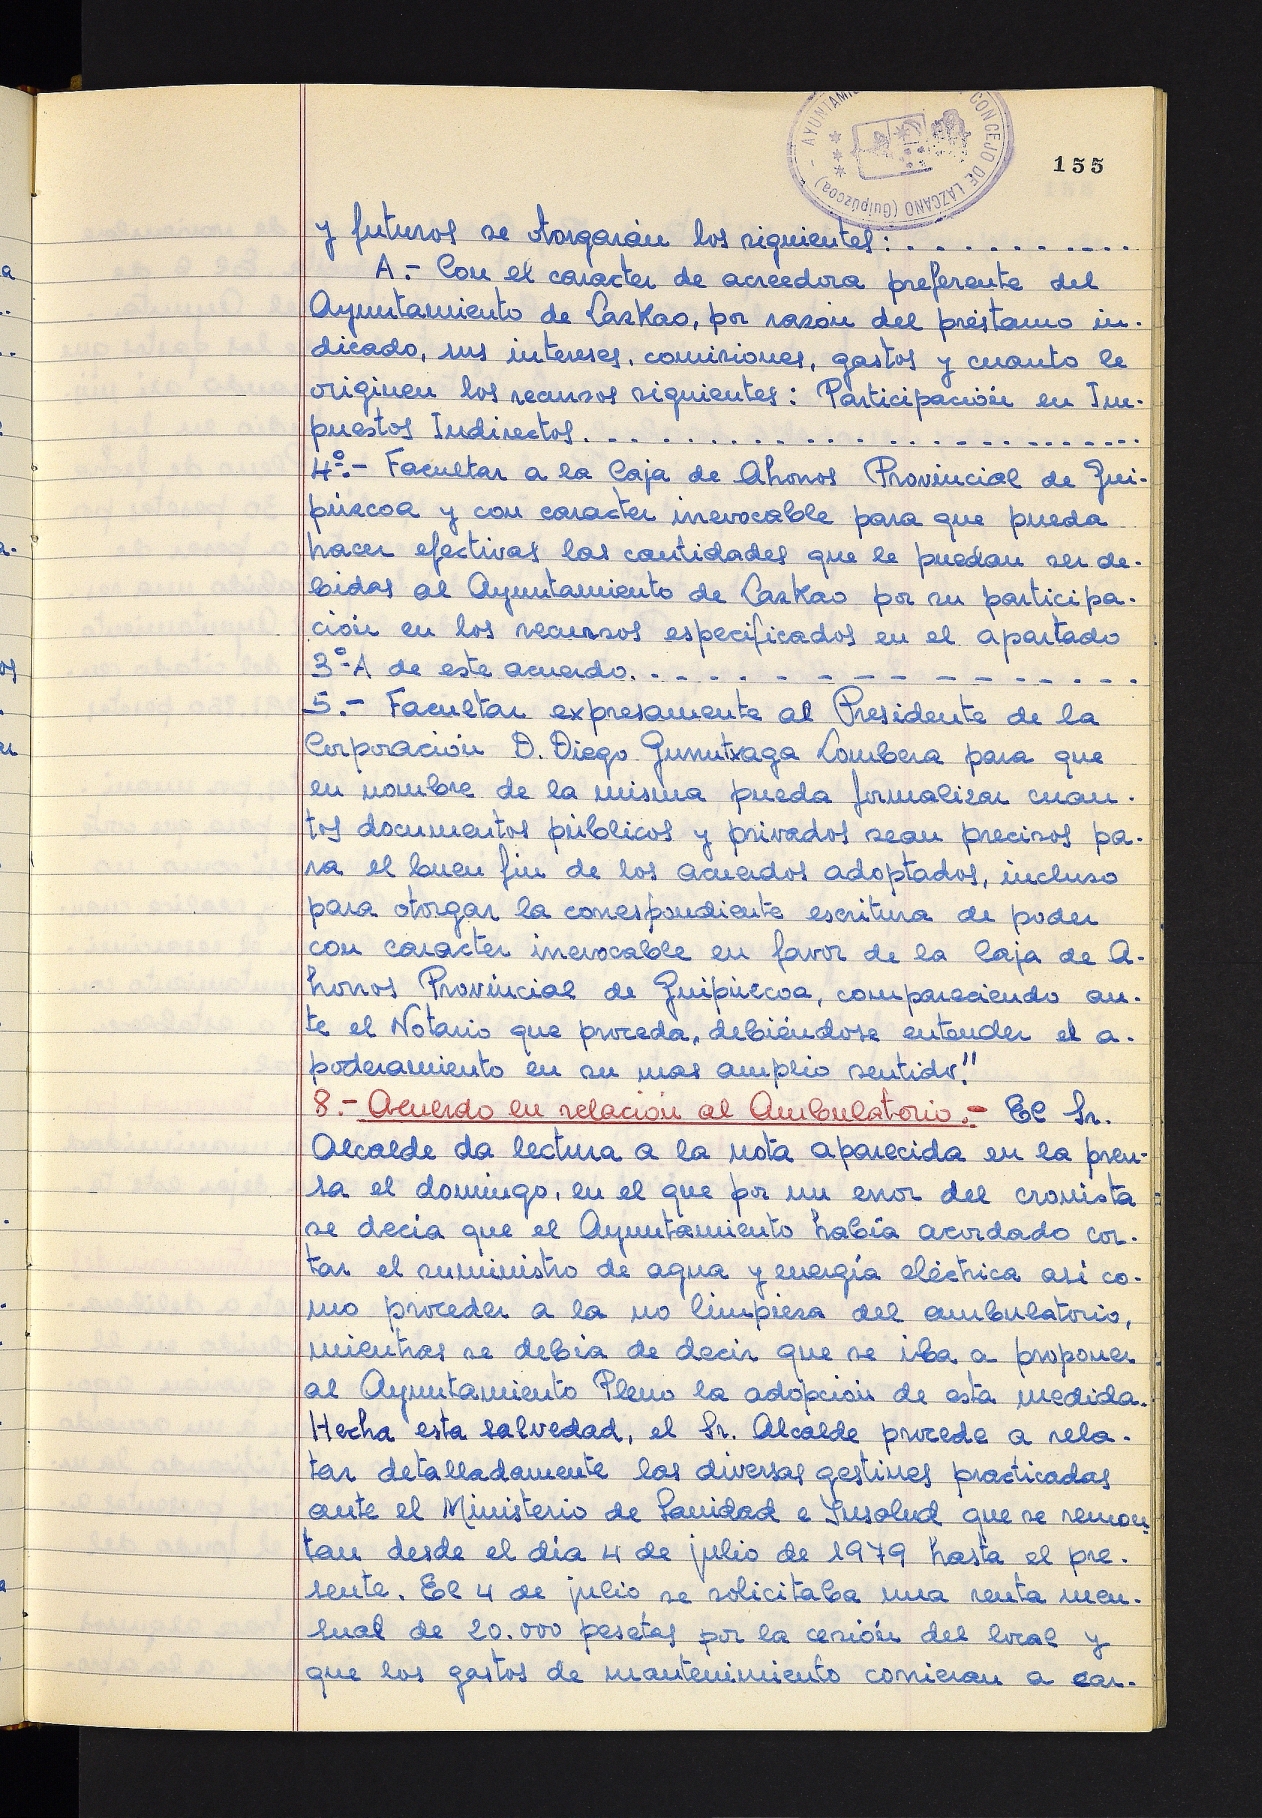 AYUNTAMI CONCEJO DE LAZCANO (Guipúzcoa)
155
y futuros se otorgarán los siguientes: . . . . . . . . . . .
A.- Con el caracter de acreedora preferente del
Ayuntamiento de Lazkao, por razón del préstamo in-
dicado, sus intereses, comisiones, gastos y cuanto le
originen los recursos siguientes: Participación en Im-
puestos Indirectos. . . . . . . . . . . . . . . . . . . .
4º.- Facultar a la Caja de Ahorros Provincial de Gui-
púzcoa y con caracter irrevocable para que pueda
hacer efectivas las cantidades que le puedan ser de-
bidas al Ayuntamiento de Lazkao por su participa-
ción en los recursos especificados en el apartado
3º-A de este acuerdo. . . - - - - - - - - - - - - . . .
5.- Facultar expresamente al Presidente de la
Corporación D. Diego Gurrutxaga Lombera para que
en nombre de la misma pueda formalizar cuan-
tos documentos públicos y privados sean precisos pa-
ra el buen fin de los acuerdos adoptados, incluso
para otorgar la correspondiente escritura de poder
con caracter irrevocable en favor de la Caja de A-
horros Provincial de Guipúzcoa, compareciendo an-
te el Notario que proceda, debiéndose entender el a-
poderamiento en su mas amplio sentido."
8.- Acuerdo en relación al Ambulatorio.- El Sr.
Alcalde da lectura a la nota aparecida en la pren-
sa el domingo, en el que por un error del cronista
se decía que el Ayuntamiento había acordado cor-
tar el suministro de agua y energía eléctrica así co-
mo proceder a la no limpieza del ambulatorio,
mientras se debía de decir que se iba a proponer
al Ayuntamiento Pleno la adopción de esta medida.
Hecha esta salvedad, el Sr. Alcalde procede a rela-
tar detalladamente las diversas gestines practicadas
ante el Ministerio de Sanidad e Insalud que se remon-
tan desde el día 4 de julio de 1979 hasta el pre-
sente. El 4 de julio se solicitaba una renta men-
sual de 20.000 pesetas por la cesión del local y
que los gastos de mantenimiento corrieran a car-